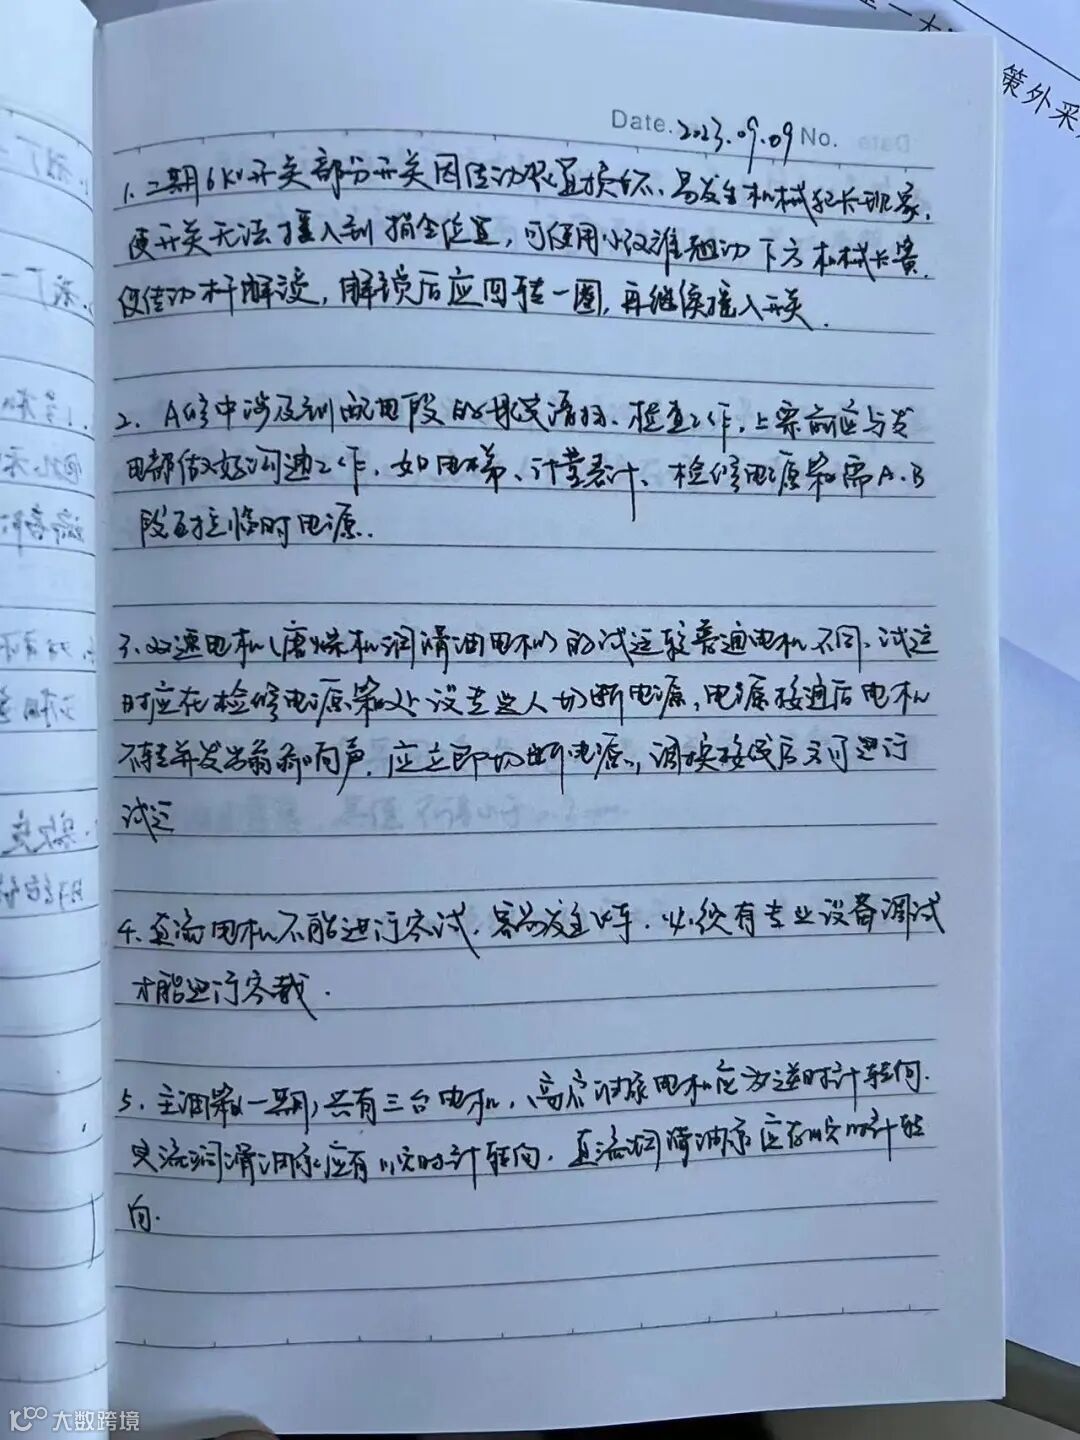 策外采
Date. 2023.09.09 No.
1. 二期6KV开关部分开关因传动装置损坏、易发生机械犯卡现象,
使开关无法摇入到指定位置,可使用小改锥翘动下方机械卡簧,
使传动杆解锁,解锁后应回转一圈,再继续摇入开关.
2. A修中涉及到配电段的母线清扫、检查工作,上票前应与发
电部做好沟通工作,如电梯、计量表计、检修电源箱需A.B
段互拉临时电源.
3. 双速电机(磨煤机润滑油电机)的试运较普通电机不同,试运
时应在检修电源箱处设专业人切断电源,电源接通后电机
不转并发出嗡嗡响声,应立即切断电源,调换接线后方可进行
试运
4. 直流电机不能进行空试,容易发生飞车,必须有专业设备调试
才能进行空载.
5. 主油箱(一期)共有三台电机,高启油泵电机应为逆时针转向.
交流润滑油泵应有顺时针转向,直流润滑油泵应有顺时针转
向.
大数跨境